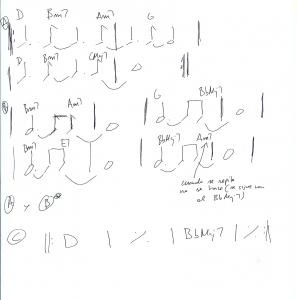 A D Bm7 Am7 G
D Bm7 CMaj7
B Bm7 Am7 G BbMaj7
Bm7 E7 BbMaj7 Am7
cuando se repite
no se hace (se sigue con
el BbMaj7)
A y B
C ||: D | ٪ | BbMaj7 | ٪ :||